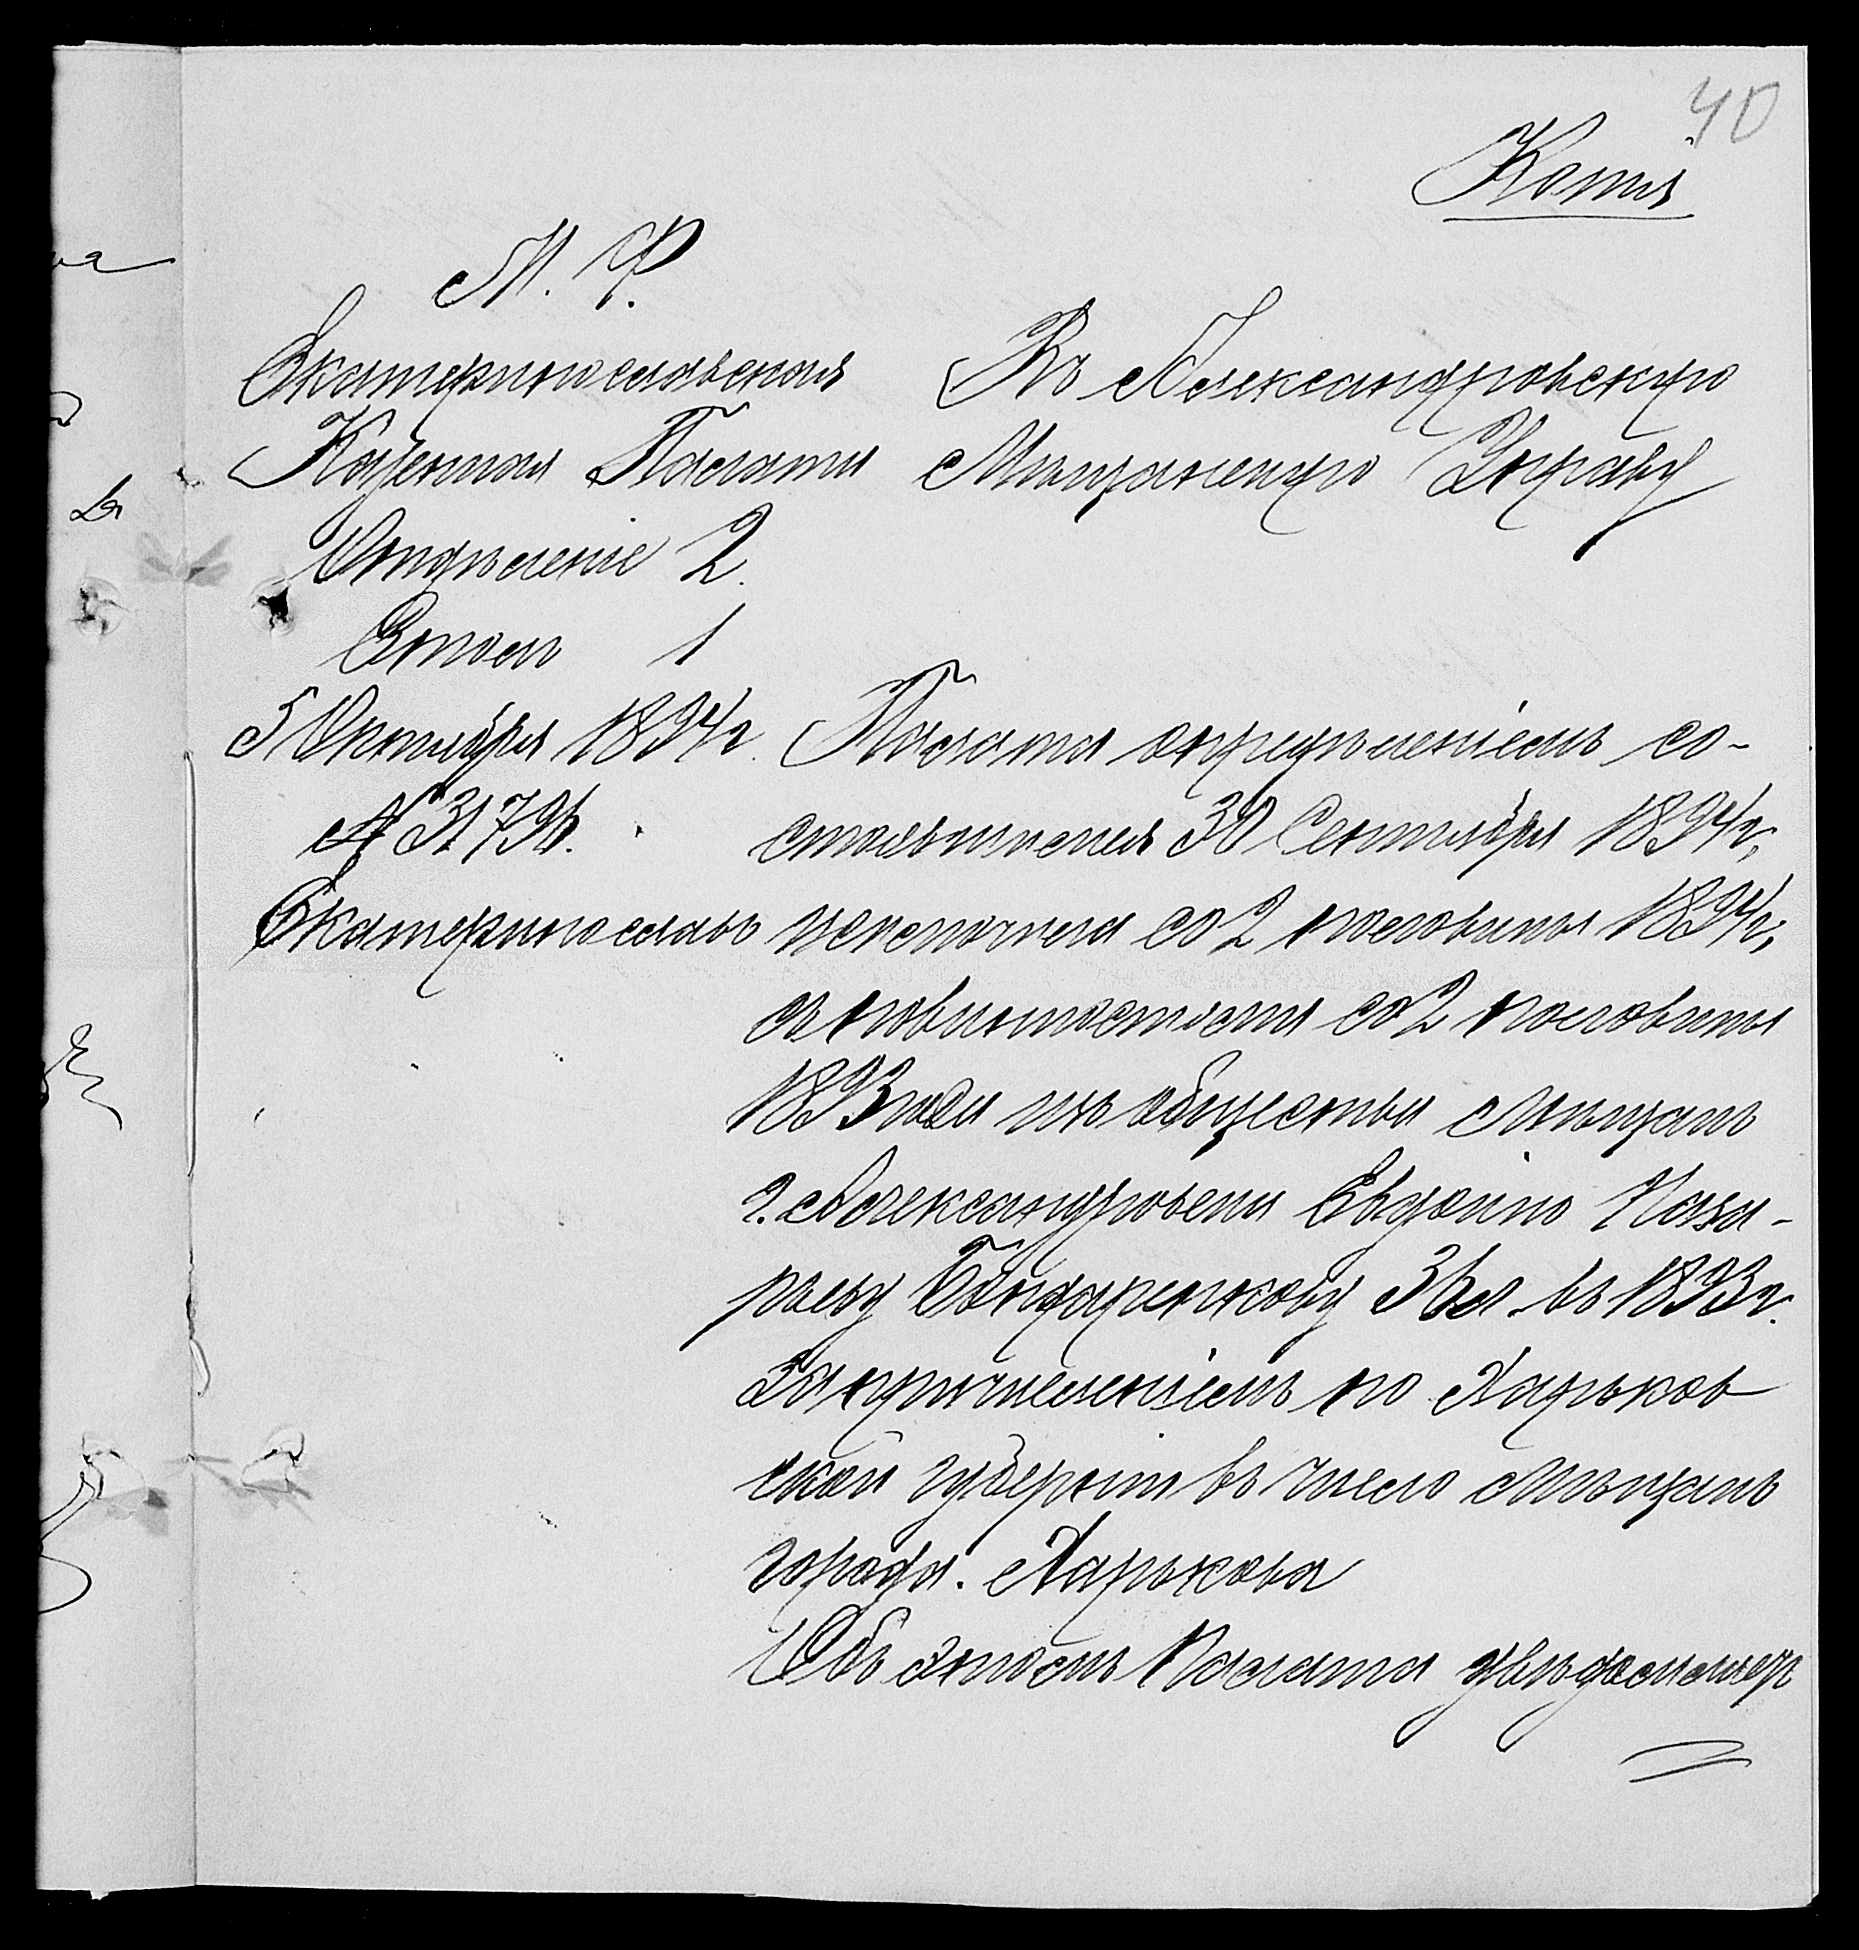 40
Копія
М. Ф.
Екатеринославская
Казенная Палата
Отдѣленіе 2.
Столъ 1
5 Октября 1894 г.
№ 31796.
Екатеринославъ
Въ Александровскую
Мѣщанскую Управу
Палата опредѣленіемъ со-
стоявшимся 30 Сентября 1894 г.
исключила со 2 половины 1894 г.
съ повинностями со 2 половины
1893 года изъ общества мѣщанъ
г. Александровска Евдокію Наза-
рьеву Бондаренкову 36 л. въ 1893 г.
за причисленіемъ по Харьков
ской губерніи въ число мѣщанъ
города. Харькова
Объ этомъ Палата увѣдомляетъ